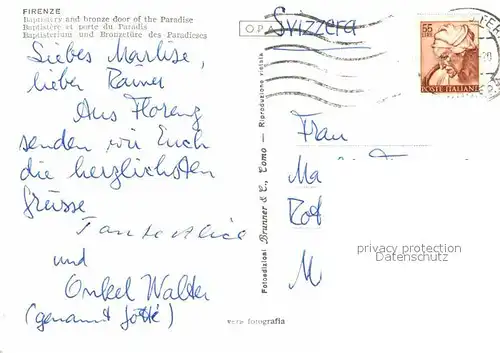 FIRENZE
Baptistry and bronze door of the Paradise
Baptistère et porte du Paradis
Baptisterium und Bronzetüre des Paradieses
Liebes Marlise,
lieber Rainer
Aus Florenz
senden wir Euch
die herzlichsten
Grüsse
Tante Alice
und
Onkel Walter
(genannt Götti)
vera fotografia
Fotoedizioni Brunner & C., Como — Riproduzione vietata
Svizzera
55
LIRE
POSTE ITALIANE
Frau
Ma
Rot
M
privacy protection
Datenschutz